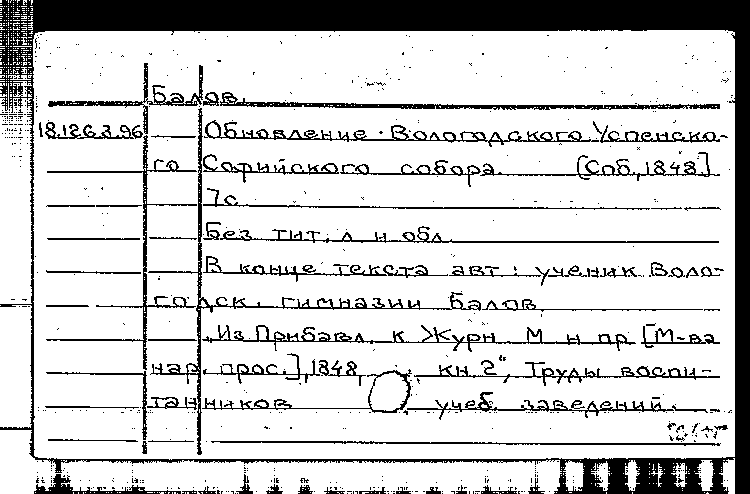 Балов.
18.126.2.96 Обновление Вологодского Успенско-
го Софийского собора. [Спб., 1848]
7с.
Без тит. л. и обл.
В конце текста авт: ученик Воло-
годск. гимназии Балов.
"Из Прибавл. к Журн. М. н. пр. [М-ва
нар. прос.], 1848, кн. 2", Труды воспи-
танников учеб. заведений.